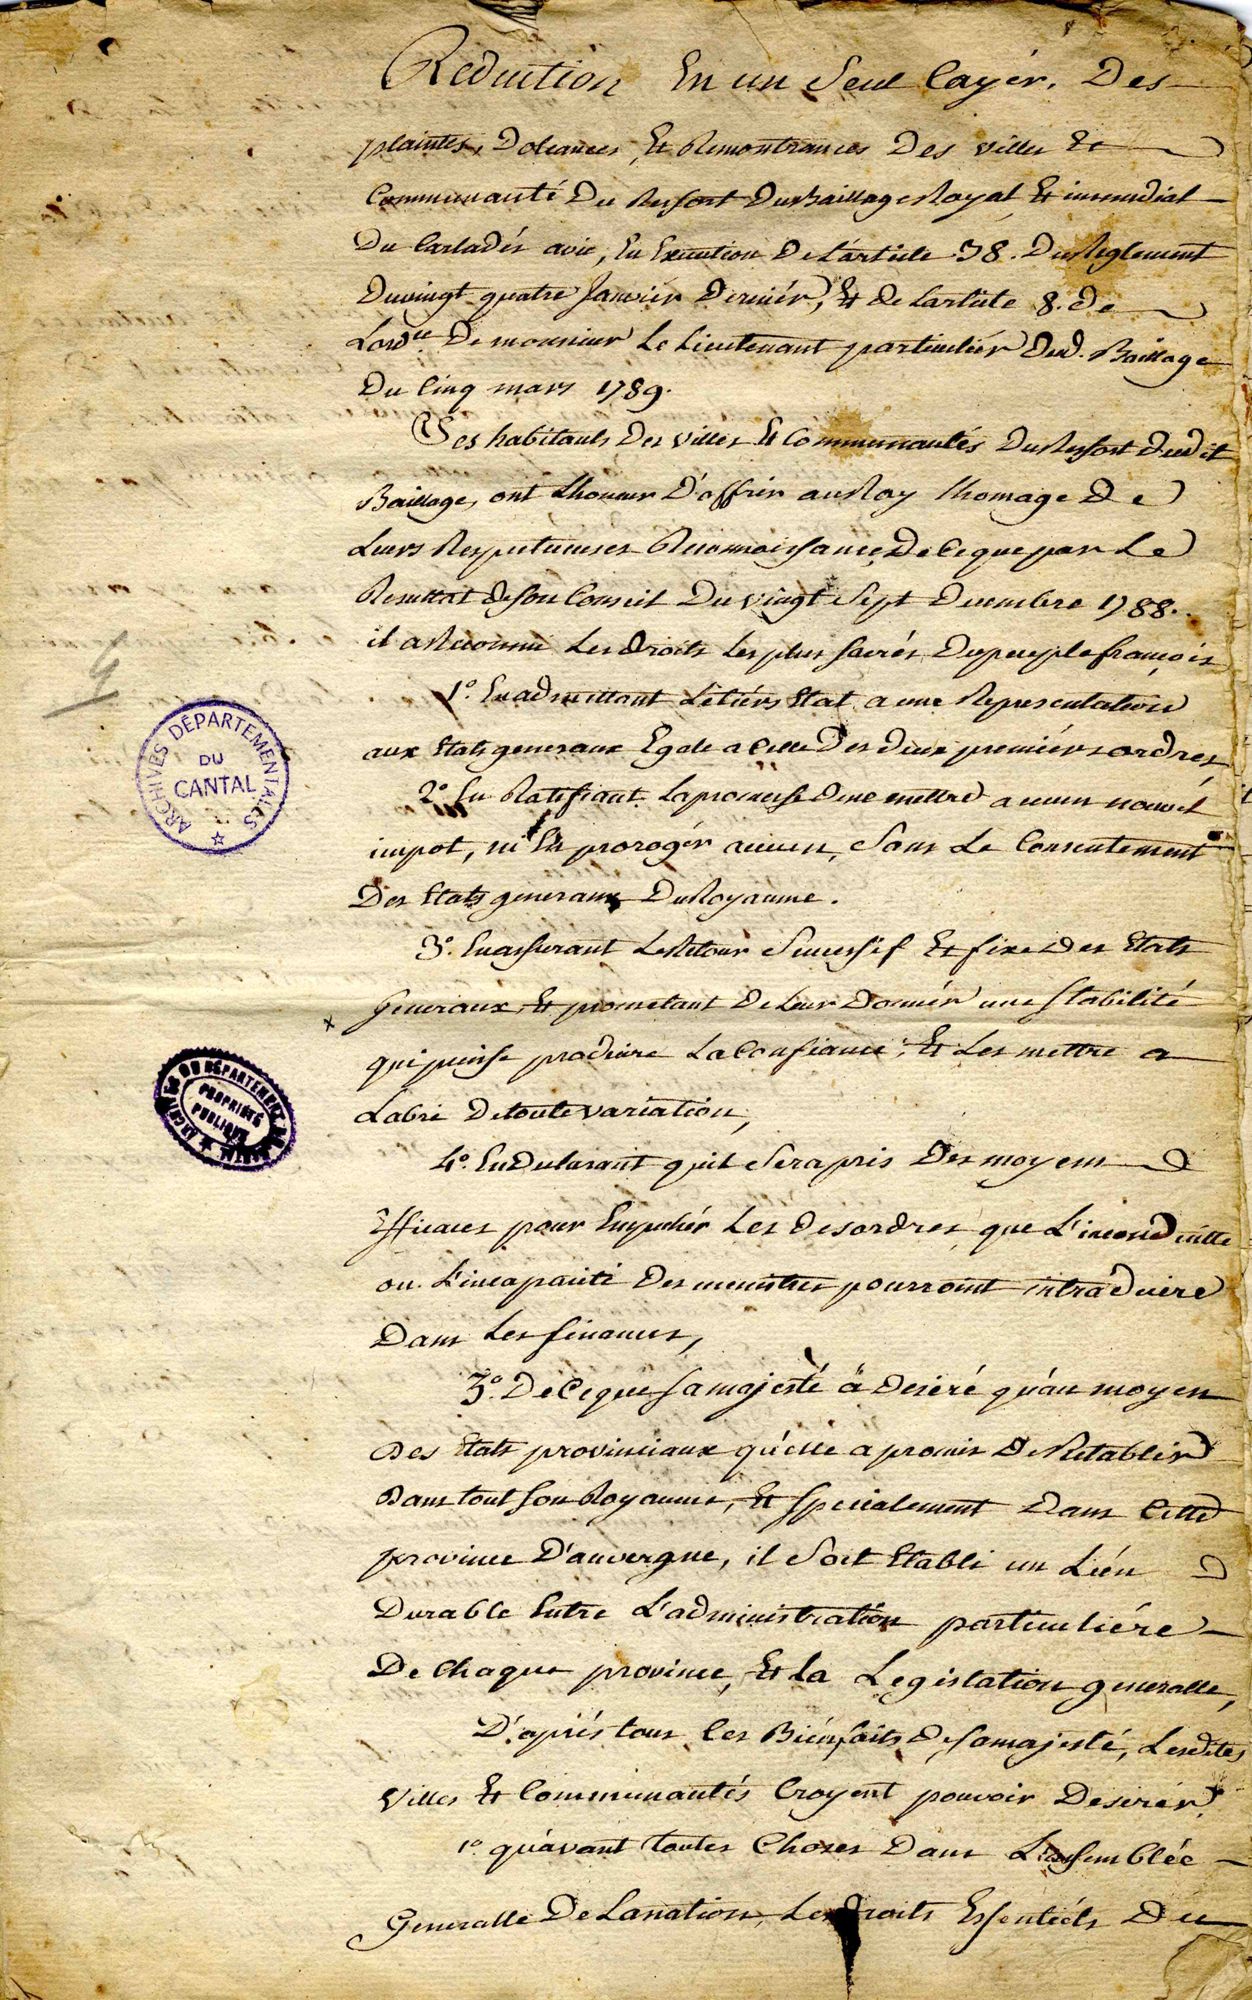 Reduction En un Seul Cayér, Des
plaintes, Doleances, Et Remontrances Des villes Et
Communauté Du Ressort Du Baillage Royal Et immediat
Du Carladés avic, En Execution De L'article 38. Du Reglement
Du vingt quatre Janvier Dernier, Et de Lartiile 8. de
Lordce De monsieur Le Lieutenant particuliér Dud. Baillage
Du Cinq mars 1789.
Les habitants Des villes Et Communautés Du Ressort Dudit
Baillage, ont Lhonneur D'offrir au Roy lhomage De
Leurs Respectueuses Reconnoissance, De Ceque par Le
Resultat de son Conseil Du vingt Sept Decembre 1788.
il a Reconnu Les droits Les plus Sacrés Du peuple françois
1°. En admettant Le tiérs Etat a une Representation
aux Etats generaux Egale a Celle Des deux premiérs ordres,
2° En Ratifiant La promesse De ne mettre aucun nouvel
impot, ni En prorogér aucun, Sans Le Consentement
Des Etats generaux Du Royaume.
3°. En assurant Le Retour Successif Et fixe Des Etats
Generaux Et prometant De Leur Donnér une stabilité
qui puisse produire La Confiance, Et Les mettre a
Labri De toute variation,
4°. En Declarant quil Sera pris Des moyens
Efficaces pour Empechér Les desordres que L'inconduitte
ou L'incapacité Des ministres pourroint introduire
Dans Les finances,
5°. De Ceque Sa majesté à Desiré qu'au moyen
Des Etats provinciaux qu'elle a promis De Retablir
Dans tout Son Royaume, Et specialement Dans Cette
province D'auvergne, il Soit Etabli un Lien
Durable Entre L'administration particuliére
De Chaque province, Et la Legislation generalle,
D'aprés tous Ces Bienfaits De Sa majesté, Lesdites
Villes Et Communautés Croyent pouvoir Desirér,
1° qu'avant toutes Choses Dans L'assemblée
Generalle De La nation, Les droits Essentiéls Du
4
ARCHIVES DÉPARTEMENTALES
DU
CANTAL
ARCHIVES DU DÉPARTEMENT DU CANTAL
PROPRIÉTÉ
PUBLIQUE